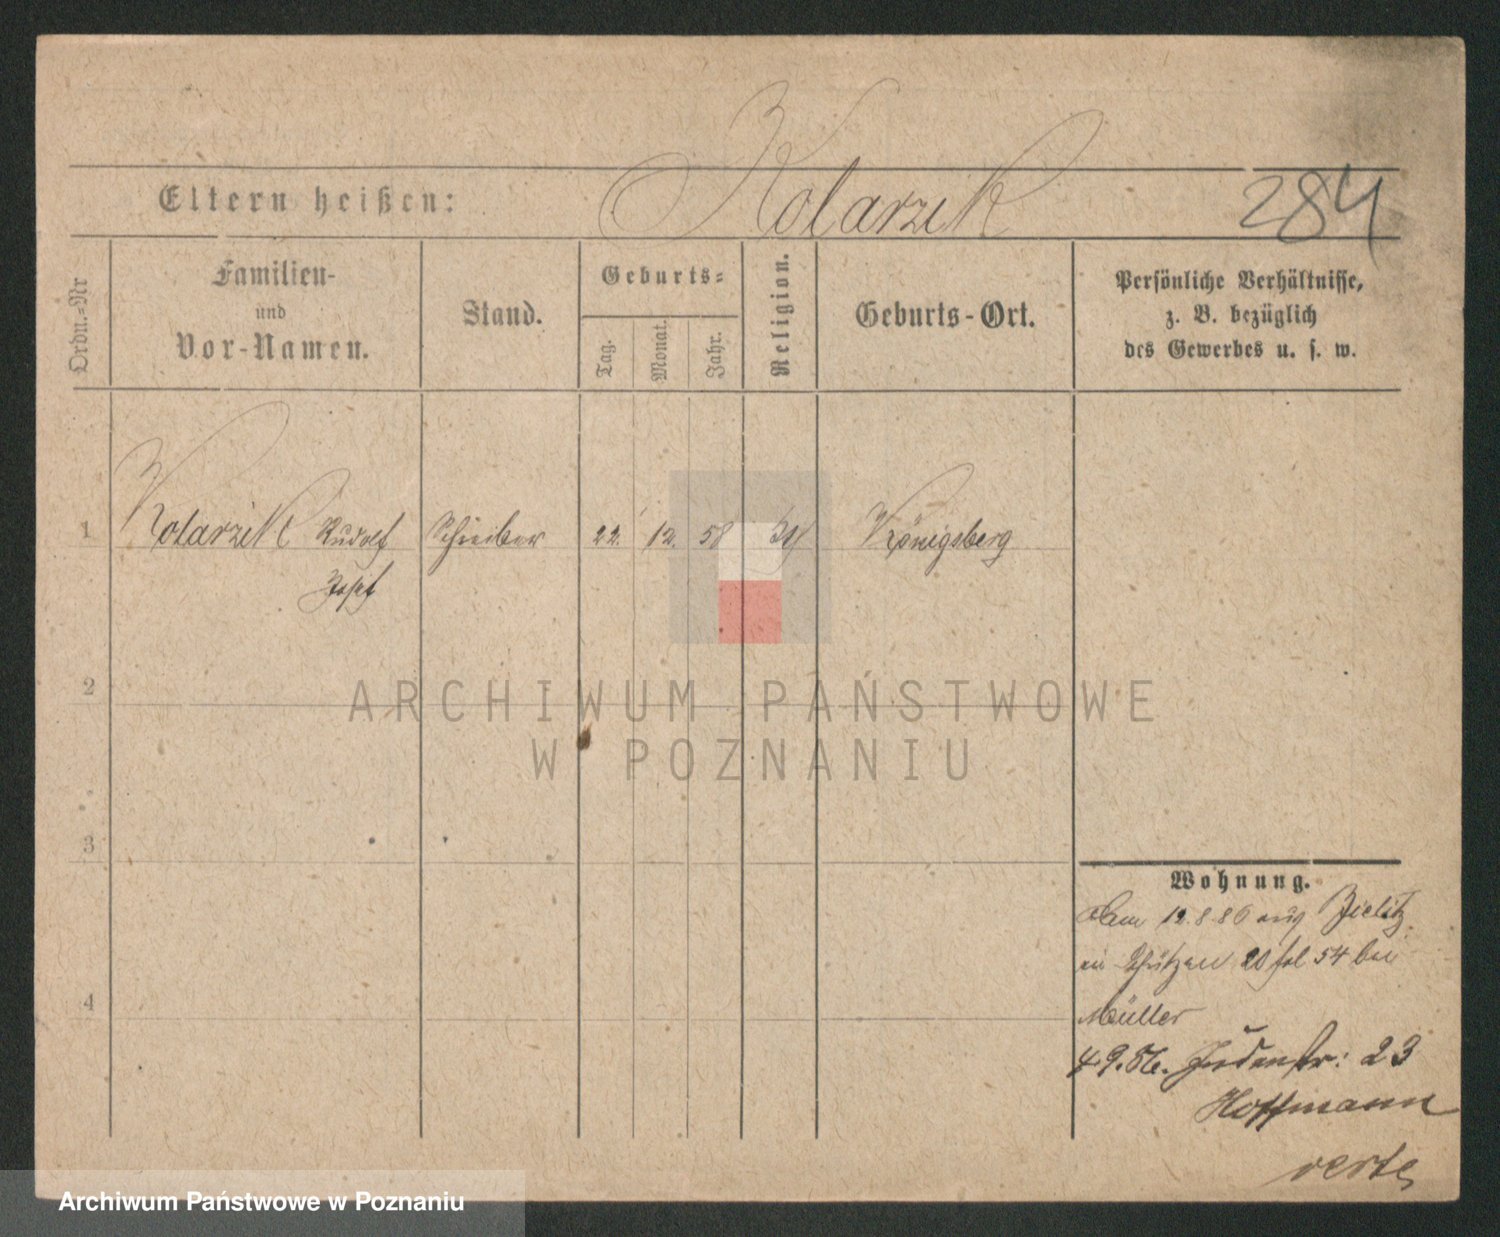 Kolarzik
284
Eltern heißen:
Ordn.-Nr
Familien-
und
Vor-Namen.
Stand.
Geburts-
Tag.
Monat.
Jahr.
Religion.
Geburts-Ort.
Persönliche Verhältnisse,
z. B. bezüglich
des Gewerbes u. s. w.
1 Kolarzik Rudolf Schreiber 22. 12. 58 Königsberg
Josef
2
3
4
ARCHIWUM PAŃSTWOWE
W POZNANIU
Wohnung.
12.8.86 aus Bielitz
20 fol 54 bei
Müller
4.9.86. Judenstr: 23
Hoffmann
verte
Archiwum Państwowe w Poznaniu